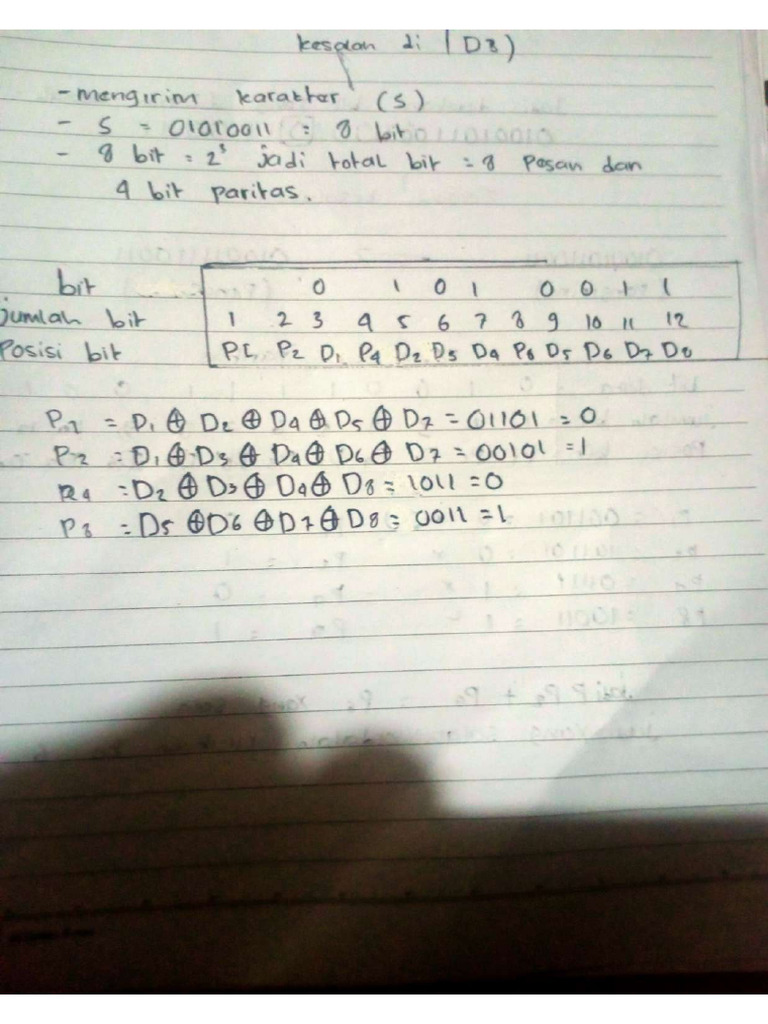 kesalan di (D8)
- mengirim karakter (S)
- S = 01010011 = 8 bit
- 8 bit = 2³ jadi total bit = 8 Pesan dan
4 bit paritas.
bit 0 1 0 1 0 0 1 1
Jumlah bit 1 2 3 4 5 6 7 8 9 10 11 12
Posisi bit P1 P2 D1 P4 D2 D3 D4 P8 D5 D6 D7 D8
P1 = D1 ⊕ D2 ⊕ D4 ⊕ D5 ⊕ D7 = 01101 = 0
P2 = D1 ⊕ D3 ⊕ D4 ⊕ D6 ⊕ D7 = 00101 = 1
P4 = D2 ⊕ D3 ⊕ D4 ⊕ D8 = 1011 = 0
P8 = D5 ⊕ D6 ⊕ D7 ⊕ D8 = 0011 = 1